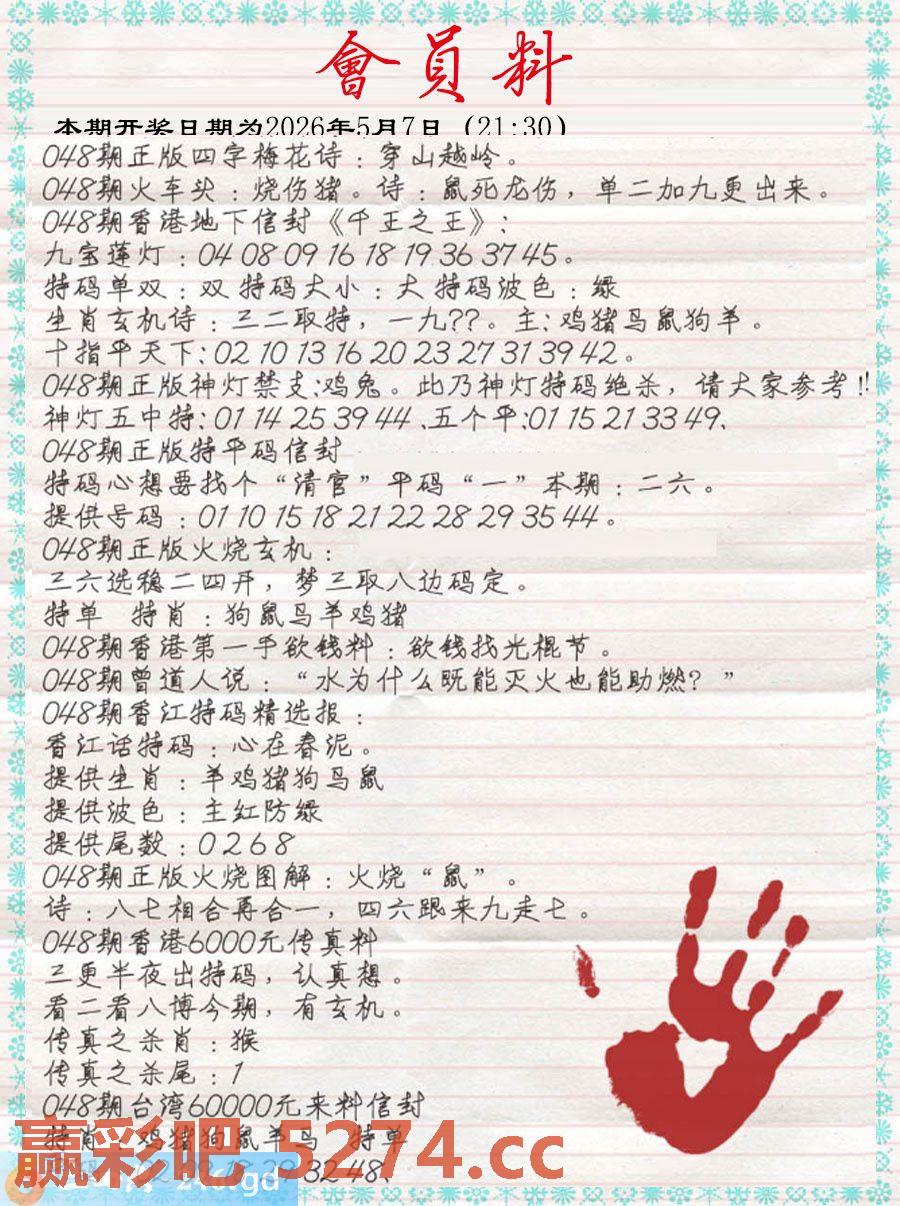 會員料
本期开奖日期为2026年5月7日（21:30）
048期正版四字梅花诗：穿山越岭。
048期火车头：烧伤猪。诗：鼠死龙伤，单二加九更出来。
048期香港地下信封《千王之王》：
九宝莲灯：04 08 09 16 18 19 36 37 45。
特码单双：双 特码大小：大 特码波色：绿
生肖玄机诗：三二取特，一九??。主：鸡猪马鼠狗羊。
十指平天下：02 10 13 16 20 23 27 31 39 42。
048期正版神灯禁支：鸡兔。此乃神灯特码绝杀，请大家参考!!
神灯五中特：01 14 25 39 44、五个平：01 15 21 33 49、
048期正版特平码信封
特码心想要找个“清官”平码“一”本期：二六。
提供号码：01 10 15 18 21 22 28 29 35 44。
048期正版火烧玄机：
三六选稳二四开，梦三取八边码定。
特单 特肖：狗鼠马羊鸡猪
048期香港第一手欲钱料：欲钱找光棍节。
048期曾道人说：“水为什么既能灭火也能助燃？”
048期香江特码精选报：
香江话特码：心在春泥。
提供生肖：羊鸡猪狗马鼠
提供波色：主红防绿
提供尾数：0 2 6 8
048期正版火烧图解：火烧“鼠”。
诗：八七相合再合一，四六跟来九走七。
048期香港6000元传真料
三更半夜出特码，认真想。
看二看八博今期，有玄机。
传真之杀肖：猴
传真之杀尾：1
048期台湾60000元来料信封
特肖 鸡猪狗鼠羊马 特单
赢彩吧 5274.cc
32 48、